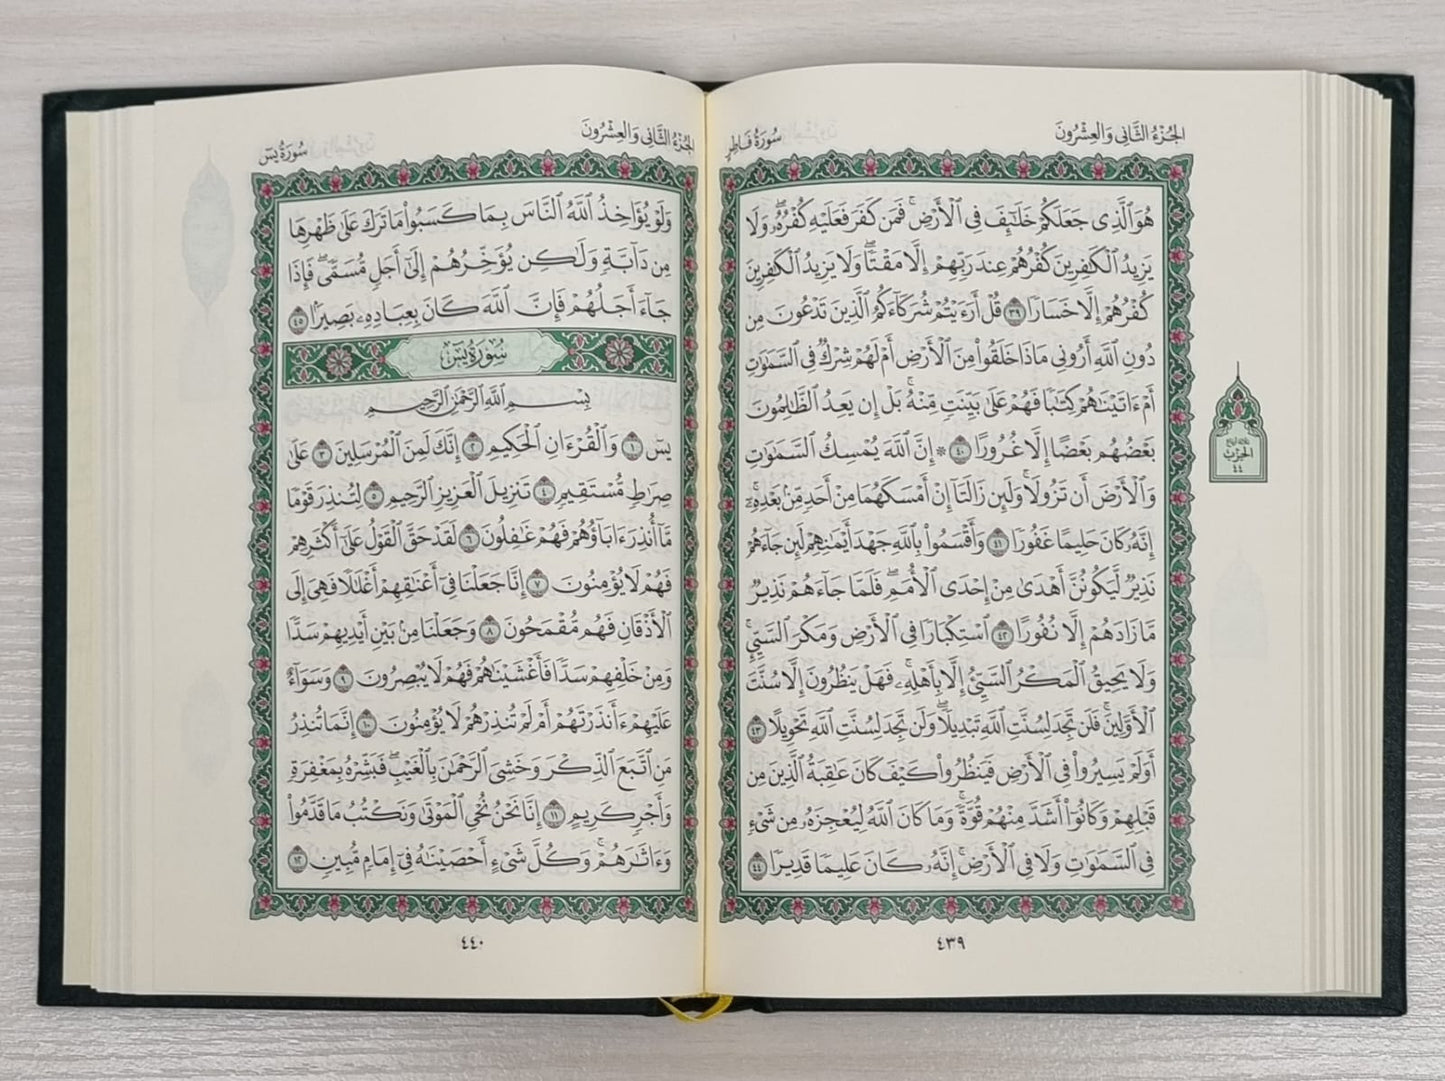 الجُزْءُ الثَّانِي وَالعِشْرُونَ
سُورَةُ فَاطِرٍ
هُوَ ٱلَّذِى جَعَلَكُمْ خَلَٰٓئِفَ فِى ٱلْأَرْضِ ۚ فَمَن كَفَرَ فَعَلَيْهِ كُفْرُهُۥ ۖ وَلَا
يَزِيدُ ٱلْكَٰفِرِينَ كُفْرُهُمْ عِندَ رَبِّهِمْ إِلَّا مَقْتًا ۖ وَلَا يَزِيدُ ٱلْكَٰفِرِينَ
كُفْرُهُمْ إِلَّا خَسَارًا ٣٩ قُلْ أَرَءَيْتُمْ شُرَكَآءَكُمُ ٱلَّذِينَ تَدْعُونَ مِن
دُونِ ٱللَّهِ أَرُونِى مَاذَا خَلَقُوا۟ مِنَ ٱلْأَرْضِ أَمْ لَهُمْ شِرْكٌ فِى ٱلسَّمَٰوَٰتِ
أَمْ ءَاتَيْنَٰهُمْ كِتَٰبًا فَهُمْ عَلَىٰ بَيِّنَتٍ مِّنْهُ ۚ بَلْ إِن يَعِدُ ٱلظَّٰلِمُونَ
بَعْضُهُم بَعْضًا إِلَّا غُرُورًا ٤٠ ۞ إِنَّ ٱللَّهَ يُمْسِكُ ٱلسَّمَٰوَٰتِ
وَٱلْأَرْضَ أَن تَزُولَا ۚ وَلَئِن زَالَتَآ إِنْ أَمْسَكَهُمَا مِنْ أَحَدٍ مِّنۢ بَعْدِهِۦٓ ۚ
إِنَّهُۥ كَانَ حَلِيمًا غَفُورًا ٤١ وَأَقْسَمُوا۟ بِٱللَّهِ جَهْدَ أَيْمَٰنِهِمْ لَئِن جَآءَهُمْ
نَذِيرٌ لَّيَكُونُنَّ أَهْدَىٰ مِنْ إِحْدَى ٱلْأُمَمِ ۖ فَلَمَّا جَآءَهُمْ نَذِيرٌ
مَّا زَادَهُمْ إِلَّا نُفُورًا ٤٢ ٱسْتِكْبَارًا فِى ٱلْأَرْضِ وَمَكْرَ ٱلسَّيِّئِ ۚ
وَلَا يَحِيقُ ٱلْمَكْرُ ٱلسَّيِّئُ إِلَّا بِأَهْلِهِۦ ۚ فَهَلْ يَنظُرُونَ إِلَّا سُنَّتَ
ٱلْأَوَّلِينَ ۚ فَلَن تَجِدَ لِسُنَّتِ ٱللَّهِ تَبْدِيلًا ۖ وَلَن تَجِدَ لِسُنَّتِ ٱللَّهِ تَحْوِيلًا ٤٣
أَوَلَمْ يَسِيرُوا۟ فِى ٱلْأَرْضِ فَيَنظُرُوا۟ كَيْفَ كَانَ عَٰقِبَةُ ٱلَّذِينَ مِن
قَبْلِهِمْ وَكَانُوٓا۟ أَشَدَّ مِنْهُمْ قُوَّةً ۚ وَمَا كَانَ ٱللَّهُ لِيُعْجِزَهُۥ مِن شَىْءٍ
فِى ٱلسَّمَٰوَٰتِ وَلَا فِى ٱلْأَرْضِ ۚ إِنَّهُۥ كَانَ عَلِيمًا قَدِيرًا ٤٤
ثلاثة أرباع
الحِزْب
٤٤
٤٣٩
الجُزْءُ الثَّانِي وَالعِشْرُونَ
سُورَةُ يسٓ
وَلَوْ يُؤَاخِذُ ٱللَّهُ ٱلنَّاسَ بِمَا كَسَبُوا۟ مَا تَرَكَ عَلَىٰ ظَهْرِهَا
مِن دَآبَّةٍ وَلَٰكِن يُؤَخِّرُهُمْ إِلَىٰٓ أَجَلٍ مُّسَمًّى ۖ فَإِذَا
جَآءَ أَجَلُهُمْ فَإِنَّ ٱللَّهَ كَانَ بِعِبَادِهِۦ بَصِيرًۢا ٤٥
سُورَةُ يسٓ
بِسْمِ ٱللَّهِ ٱلرَّحْمَٰنِ ٱلرَّحِيمِ
يسٓ ١ وَٱلْقُرْءَانِ ٱلْحَكِيمِ ٢ إِنَّكَ لَمِنَ ٱلْمُرْسَلِينَ ٣ عَلَىٰ
صِرَٰطٍ مُّسْتَقِيمٍ ٤ تَنزِيلَ ٱلْعَزِيزِ ٱلرَّحِيمِ ٥ لِتُنذِرَ قَوْمًا
مَّآ أُنذِرَ ءَابَآؤُهُمْ فَهُمْ غَٰفِلُونَ ٦ لَقَدْ حَقَّ ٱلْقَوْلُ عَلَىٰٓ أَكْثَرِهِمْ
فَهُمْ لَا يُؤْمِنُونَ ٧ إِنَّا جَعَلْنَا فِىٓ أَعْنَٰقِهِمْ أَغْلَٰلًا فَهِىَ إِلَى
ٱلْأَذْقَانِ فَهُم مُّقْمَحُونَ ٨ وَجَعَلْنَا مِنۢ بَيْنِ أَيْدِيهِمْ سَدًّا
وَمِنْ خَلْفِهِمْ سَدًّا فَأَغْشَيْنَٰهُمْ فَهُمْ لَا يُبْصِرُونَ ٩ وَسَوَآءٌ
عَلَيْهِمْ ءَأَنذَرْتَهُمْ أَمْ لَمْ تُنذِرْهُمْ لَا يُؤْمِنُونَ ١٠ إِنَّمَا تُنذِرُ
مَنِ ٱتَّبَعَ ٱلذِّكْرَ وَخَشِىَ ٱلرَّحْمَٰنَ بِٱلْغَيْبِ ۖ فَبَشِّرْهُ بِمَغْفِرَةٍ
وَأَجْرٍ كَرِيمٍ ١١ إِنَّا نَحْنُ نُحْىِ ٱلْمَوْتَىٰ وَنَكْتُبُ مَا قَدَّمُوا۟
وَءَاثَٰرَهُمْ ۚ وَكُلَّ شَىْءٍ أَحْصَيْنَٰهُ فِىٓ إِمَامٍ مُّبِينٍ ١٢
٤٤٠